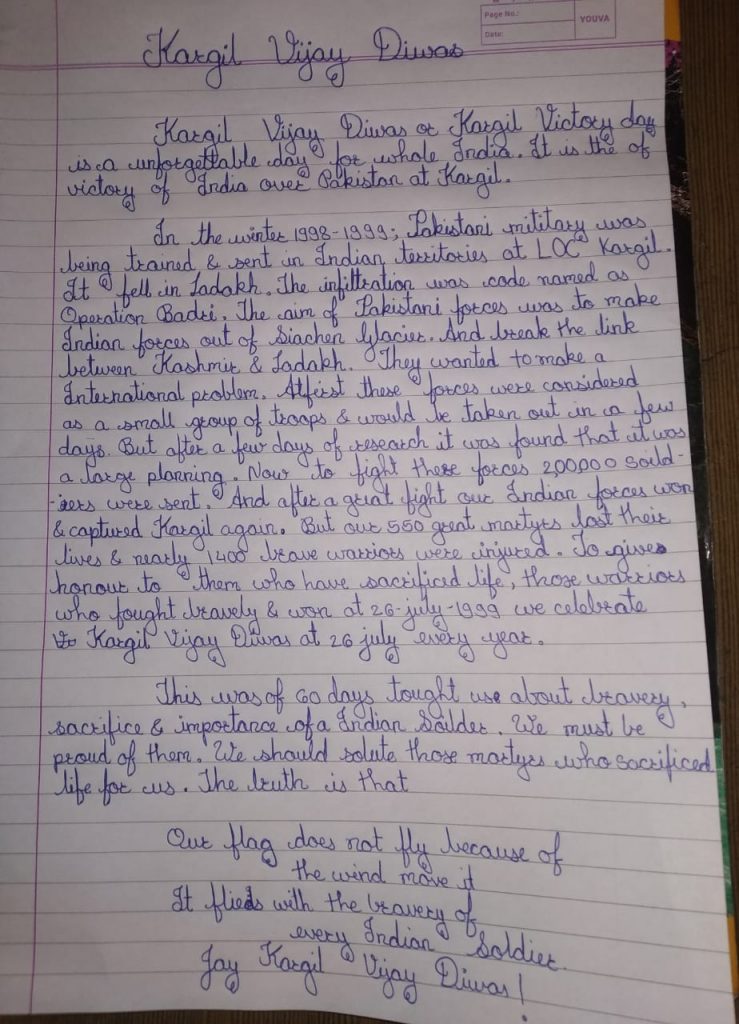 Page No.:
Date:
YOUVA
Kargil Vijay Diwas
Kargil Vijay Diwas or Kargil Victory day
is a unforgettable day for whole India. It is the of
victory of India over Pakistan at Kargil.
In the winter 1998-1999, Pakistani mititary was
being trained & sent in Indian territories at LOC Kargil.
It fell in Ladakh. The infiltration was code named as
Operation Badri. The aim of Pakistani forces was to make
Indian forces out of Siachen Glacier. And break the link
between Kashmir & Ladakh. They wanted to make a
International problem. Atfirst these forces were considered
as a small group of troops & would be taken out in a few
days. But after a few days of research it was found that it was
a large planning. Now to fight these forces 200,000 soild-
-iers were sent. And after a great fight our Indian forces won
& captured Kargil again. But our 550 great martyrs lost their
lives & nearly 1400 brave warriors were injured. To give
honour to them who have sacrificed life, those warriors
who fought bravely & won at 26-july-1999 we celebrate
Kargil Vijay Diwas at 26 july every year.
This was of 60 days tought use about bravery,
sacrifice & importance of a Indian Soilder. We must be
proud of them. We should solute those martyrs who sacrificed
life for us. The truth is that
Our flag does not fly because of
the wind move it
It flies with the bravery of
every Indian Soldier.
Jay Kargil Vijay Diwas!